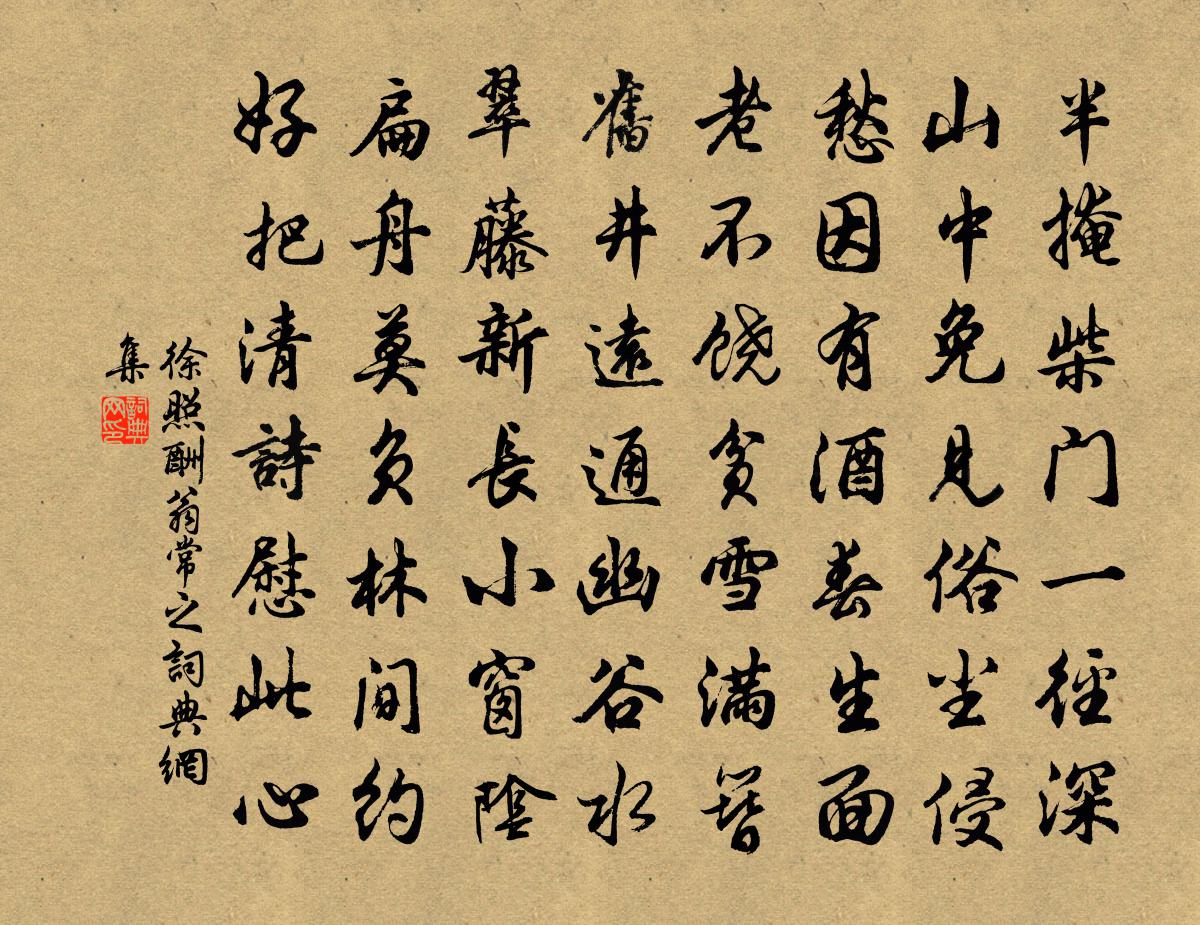 半掩柴门一徑深
山中免見俗尘侵
愁因有酒春生面
老不饶貧雪满簪
舊井遠通幽谷水
翠藤新長小窗陰
扁舟莫負林间约
好把清詩慰此心
徐照酬翁常之詞典網
集
詞典网印